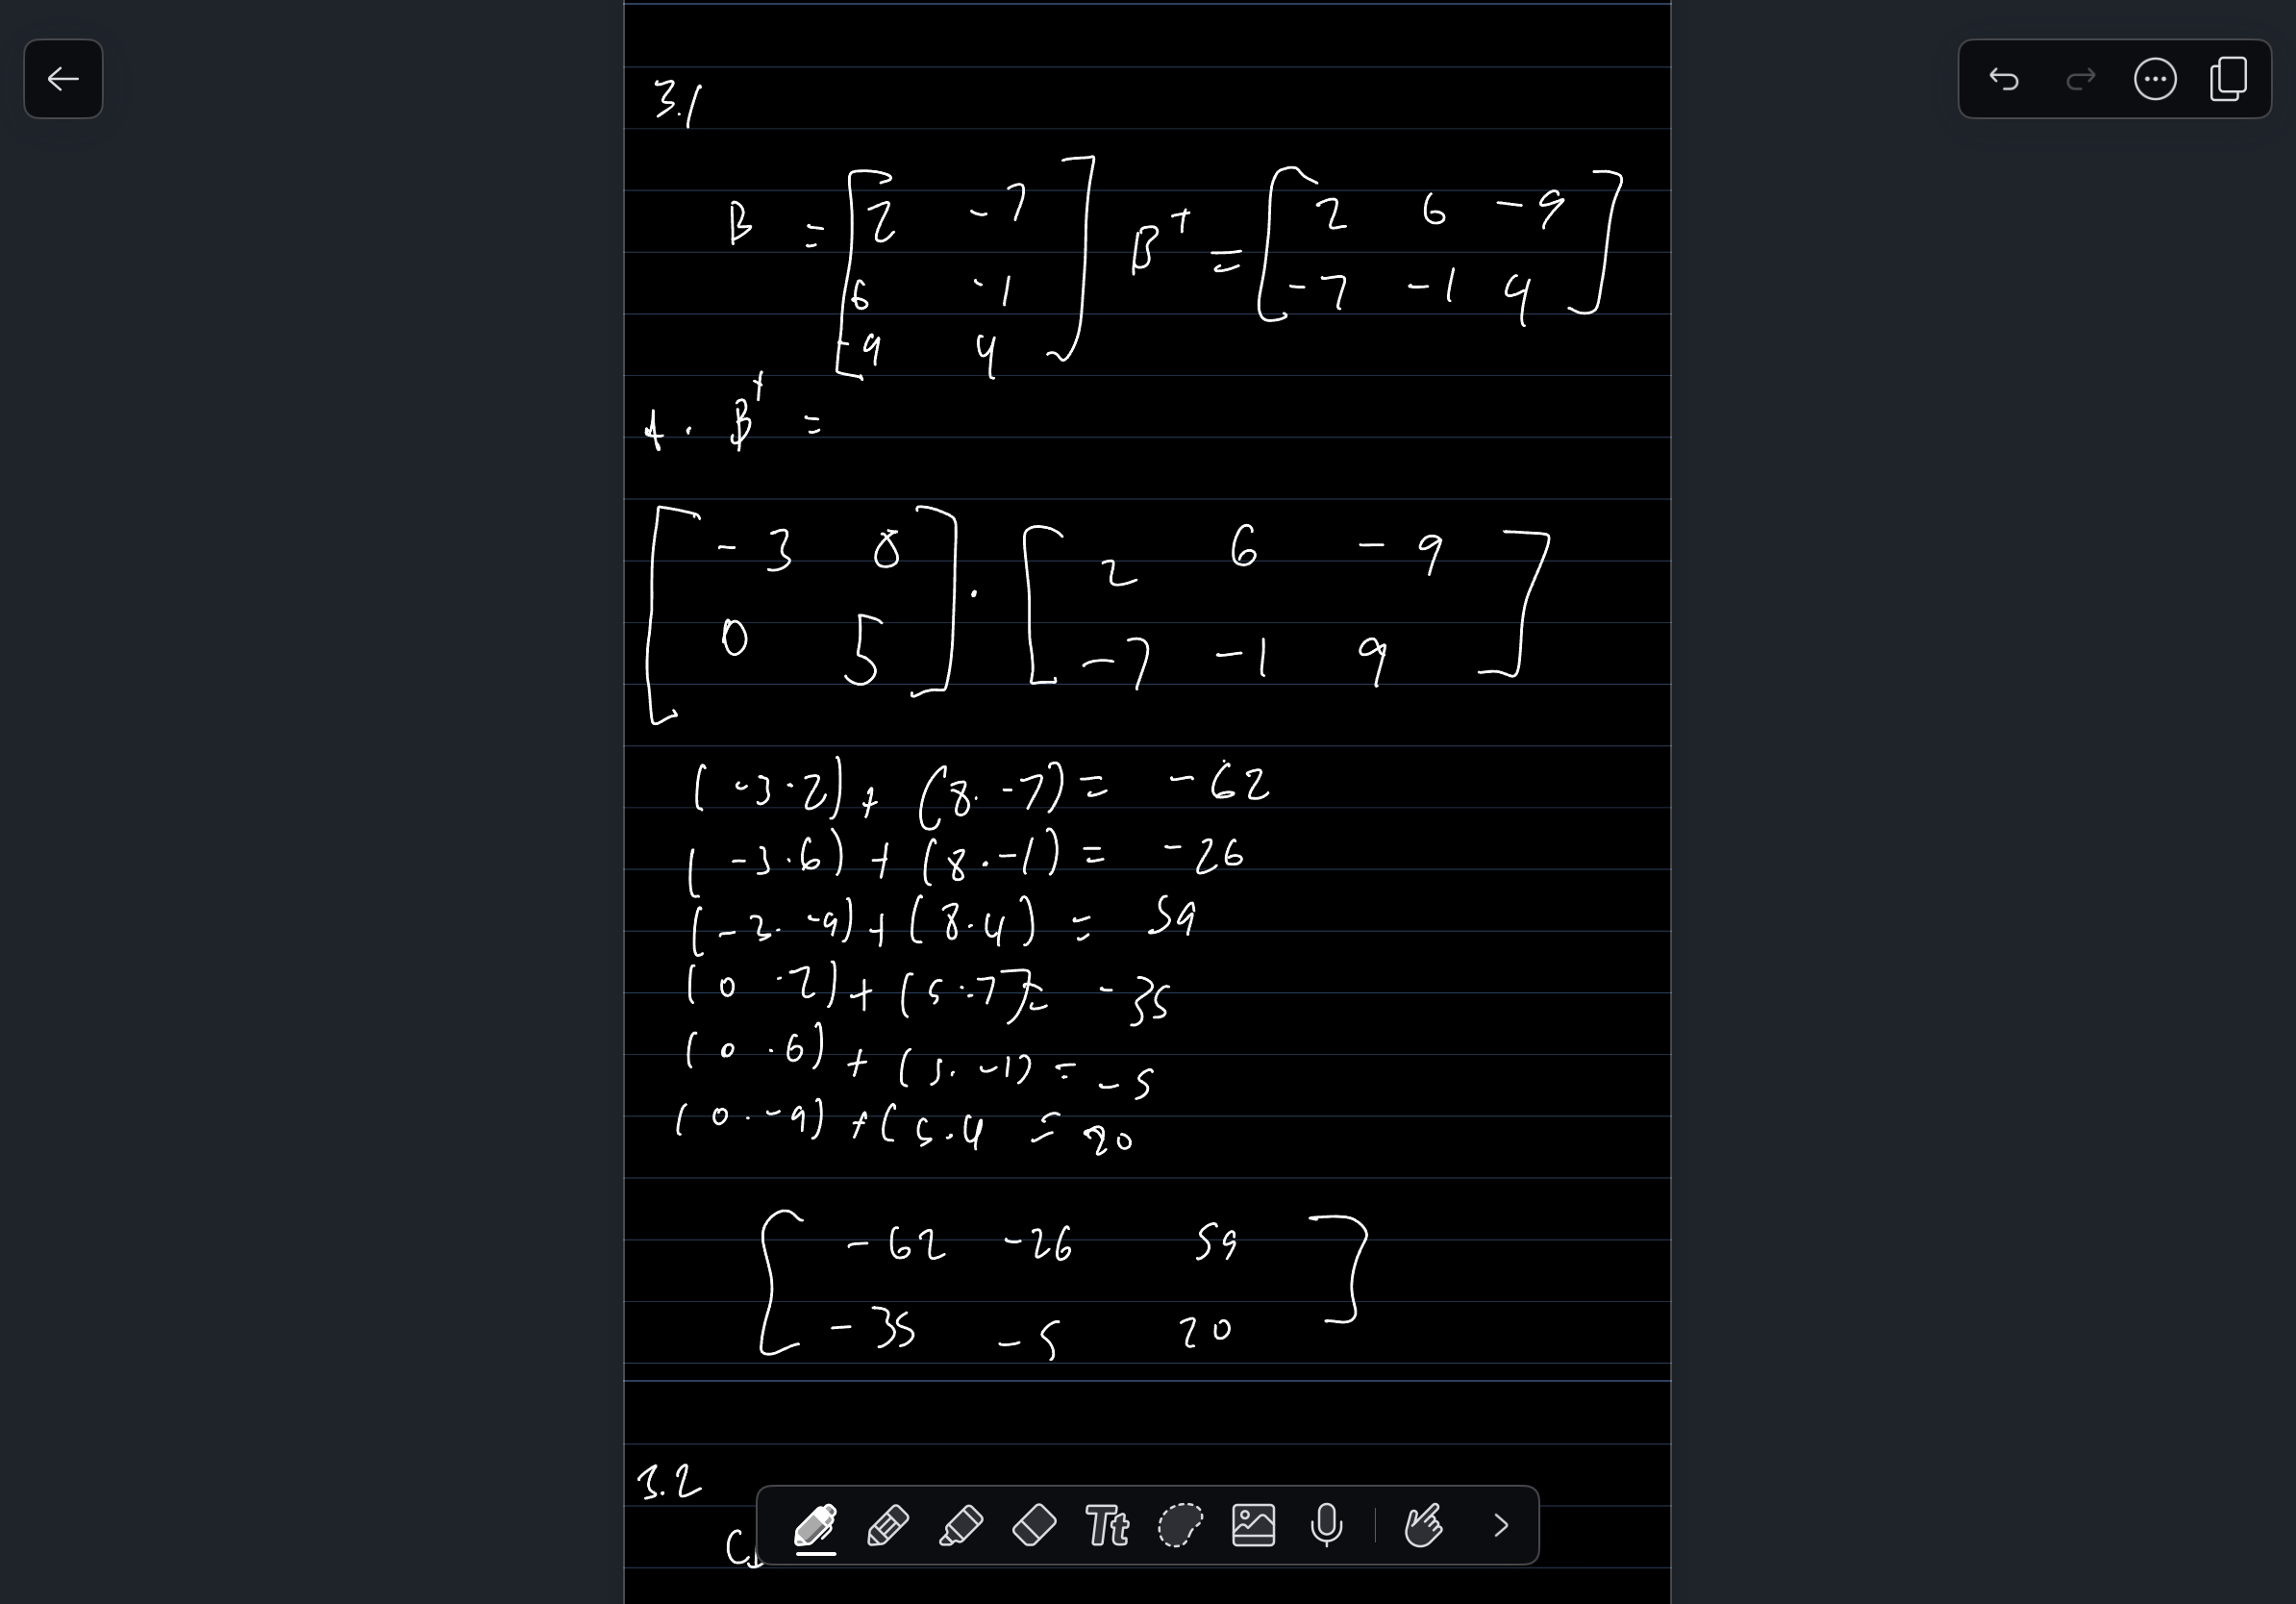 3.1
B = [ 2 -7 ] B^T = [ 2 6 -9 ]
6 -1 -7 -1 4
-9 4
A · B^T =
[ -3 8 ] · [ 2 6 -9 ]
0 5 -7 -1 9
(-3·2) + (8·-7) = -62
(-3·6) + (8·-1) = -26
(-3·-9) + (8·4) = 59
(0·2) + (5·-7) = -35
(0·6) + (5·-1) = -5
(0·-9) + (5·4 = 20
[ -62 -26 59 ]
-35 -5 20
3.2
Tt